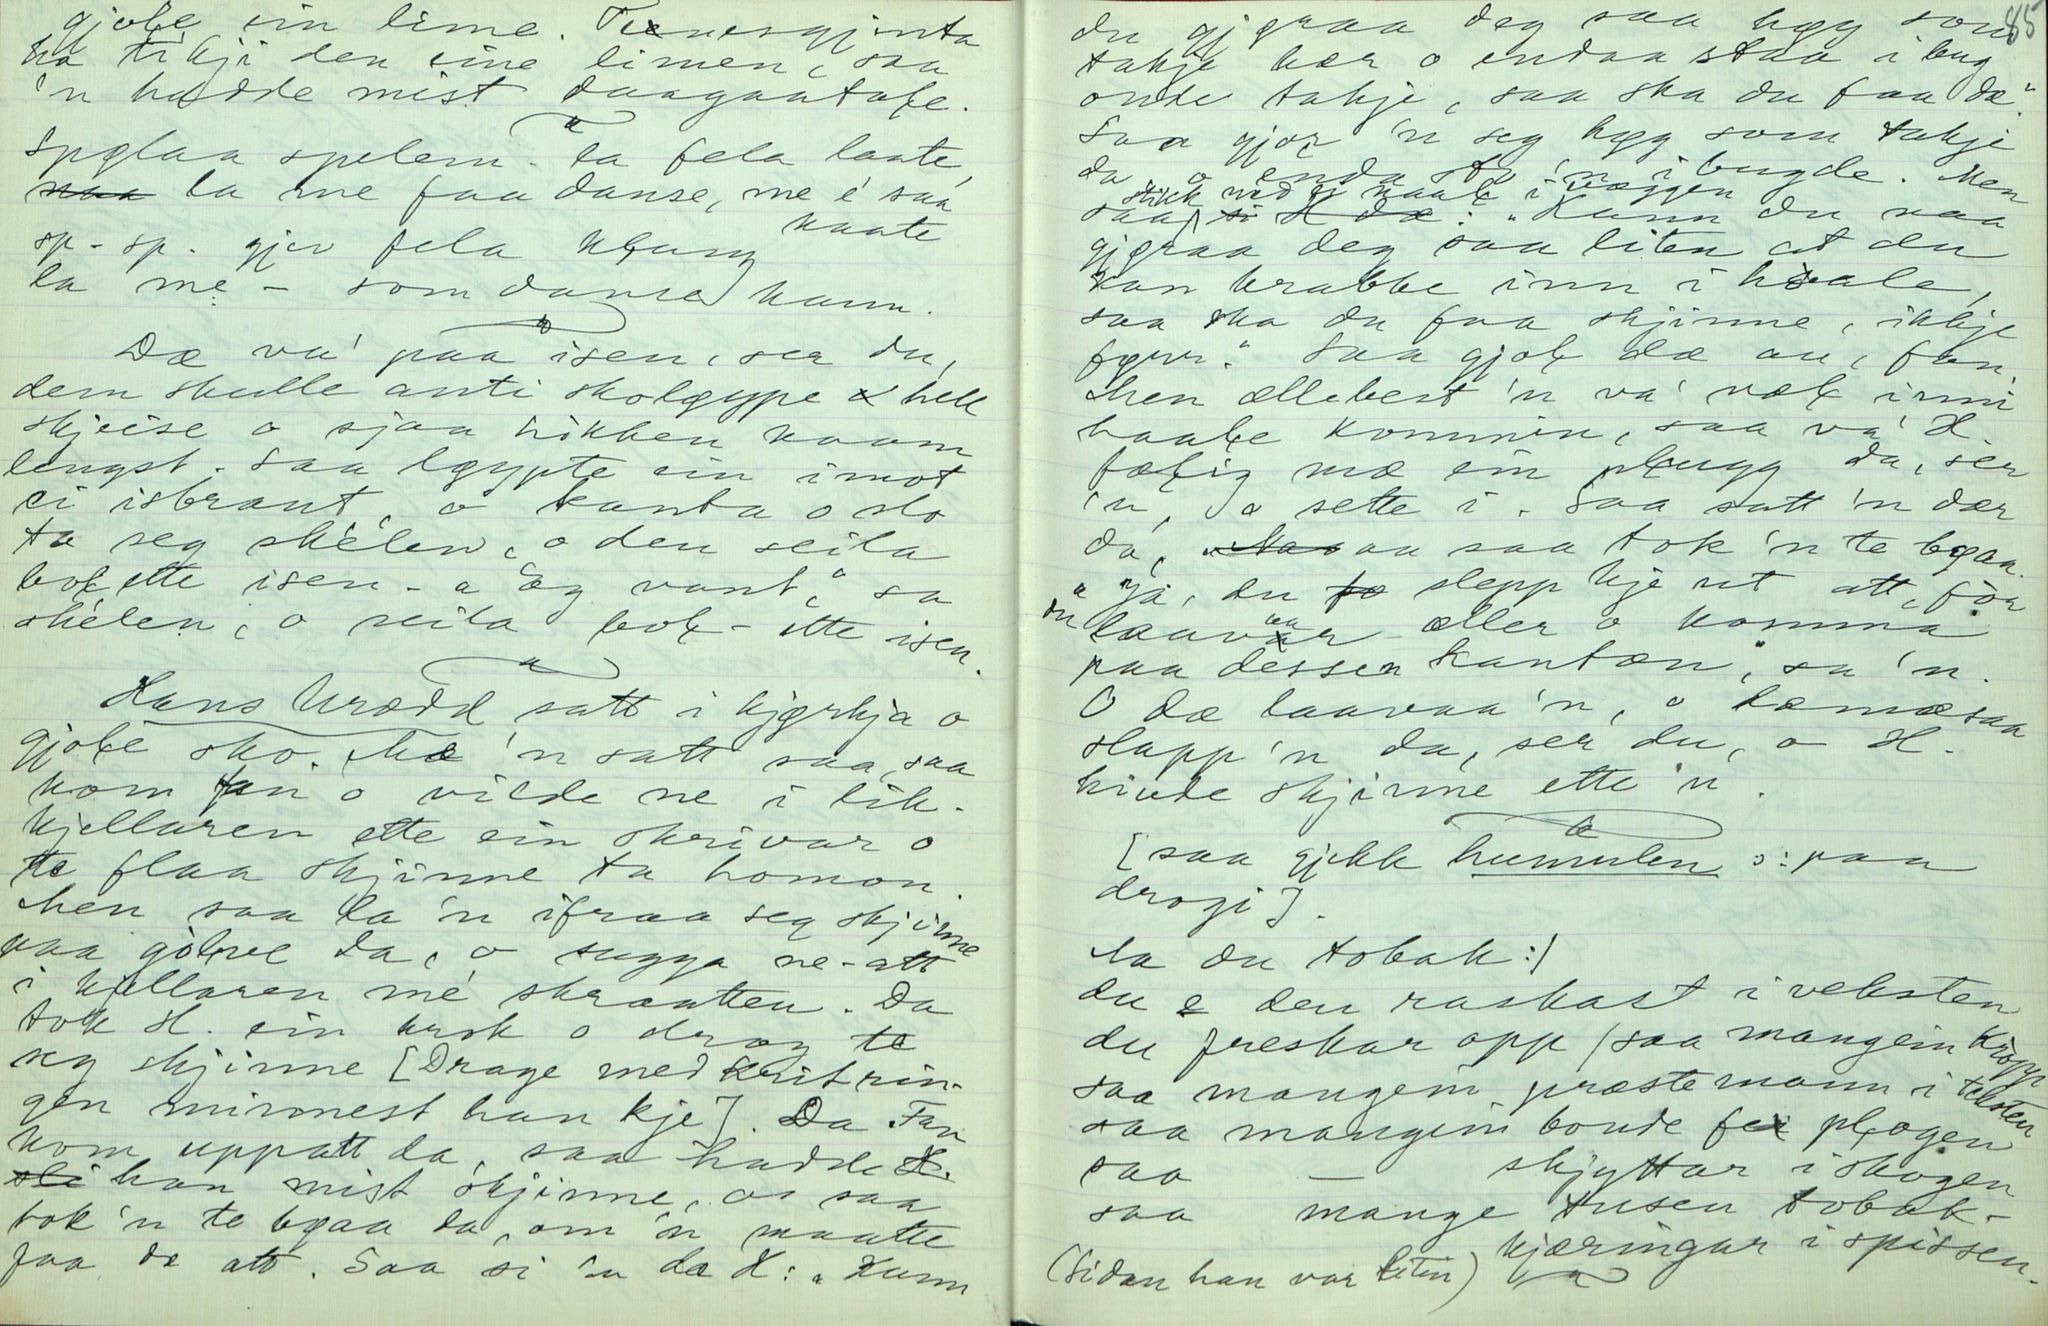 gjole ein lime. Tenesgjenta
ha tikji den eine limen, saa
'n hadde mist daagaatale.
Spølaa spelem. la fela laate,
la me faa danse, me é saa
kaate
sp-sp. gjev fela klang
la me - som danse kann.
Dæ va' paa isen, ser du,
dem skulle anti skoløype hell
skjeise o sjaa hikken kaam
lengst. Saa løypte ein imot
ei isbrant, o kanta o slo
ta seg skélen, o den seila
bole ette isen - "æg vant," sa
skélen, o seila bole - ette isen.
Hans Urædd satt i kjørkja o
gjole sko. Mæ 'n satt saa, saa
kom fan o vilde ne i lik-
kjellaren ette ein skrivar o
te flaa skjinne ta honom.
Men saa la 'n ifraa seg skjinne
paa gólve da, o sugga ne-att
i kjellaren mé skraatten. Da
tok H. ein krok o drog te
seg skjinne [Drage med kritrin-
gen minnest han kje]. Da Fan
kom uppatt da, saa hadde
han mist skjinne, o saa
tok 'n te bøaa da, om 'n maatte
faa de att. Saa si 'n da H: "Kann
85
du gjøraa deg saa høg som
takje hær o endaa staa i bug
onde takje, saa ska du faa dæ."
Saa gjor 'n seg høg som takje
da, o enda sto 'n i bugde. Men
stikk med ei naale i væggen
saa si H dæ: "Kann du naa
gjøraa deg saa liten at du
kan krabbe inn i hoale,
saa ska du faa skjinne, ikkje
førr." Saa gjole dæ au, fan,
Men ællebest 'n va' væl inni
haale kommin, saa va' H.
fælig mæ ein plugg da, ser
'n, o sette i. Saa satt 'n dær
da, aa saa tok 'n te bøaa.
"Ja, du slepp kje ut att, før
du laavaar æller o komma
paa dessea kantæn," sa 'n.
O dæ laavaa 'n, o dæmæ saa
slapp 'n da, ser du, o H.
hivde skjinne ette 'n.
[saa gjekk humulen ɔ: paa
drogi].
Aa du tobak :/
du e den raskast i veksten
du freskar opp /saa mangein kropp
saa mangein præstemann i teksten
saa mangein bonde fe plogen
saa — skjyttar i skogen
saa mange tusen tobak-
kjæringar i spissen.
(Sidan han var liten)